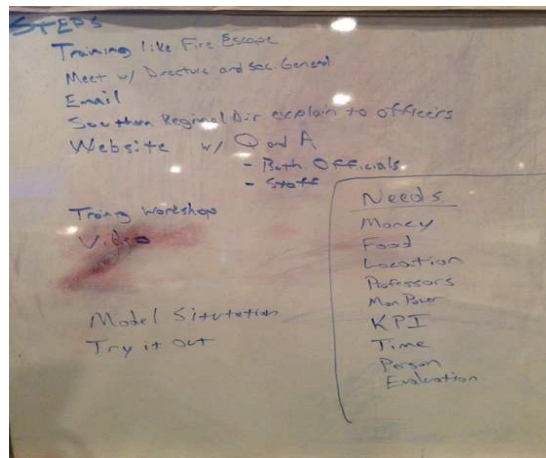 STEPS
Training like Fire Escape
Meet w/ Directure and Sec. General
Email
Southern Regional Dir explain to officers
Website w/ Q and A
- Both Officials
- Staff
Traing Workshop
Video
Model Situtation
Try it out
Needs
Money
Food
Location
Professors
Man Power
KPI
Time
Person
Evaluation